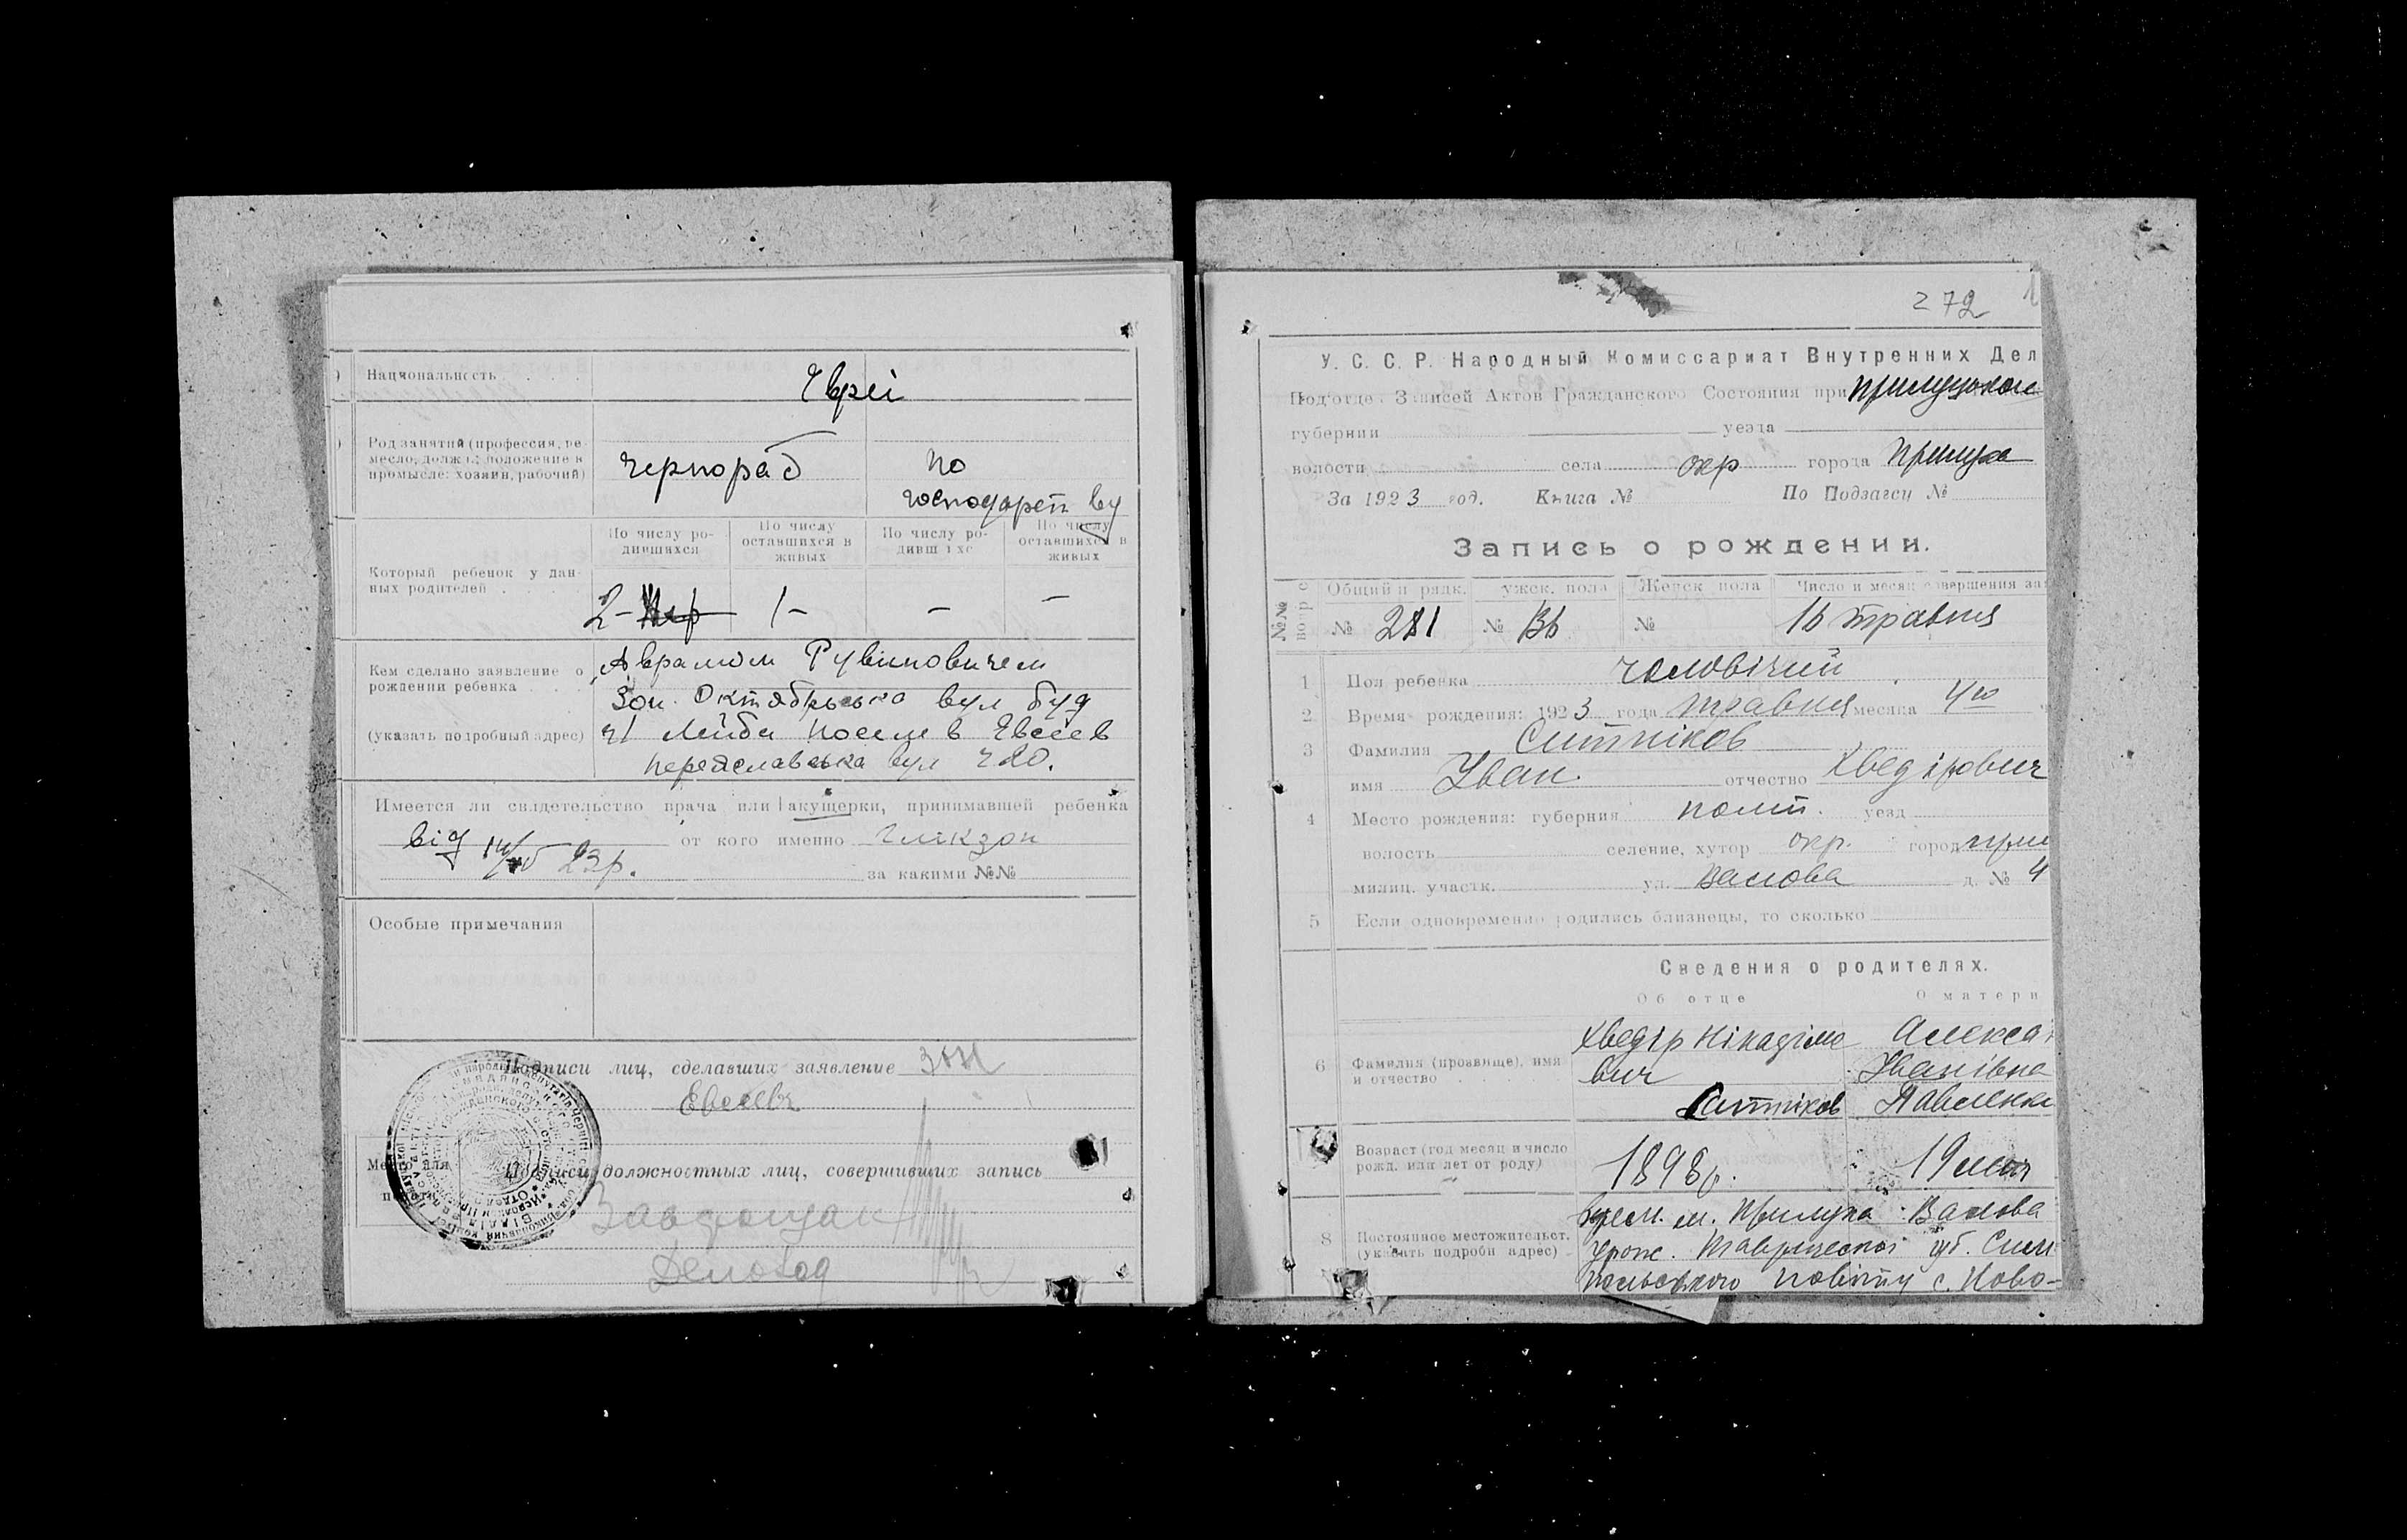 Национальность
Євреї
Род занятий (профессия, ре-
месло, должн.; положение в
промысле: хозяин, рабочий)
Чернораб
по
господарств ву
По числу ро-
дившихся
По числу
оставшихся в
живых
По числу ро-
дивш хс
По числу
оставшихся в
живых
Который ребенок у дан-
ных родителей
2-
1-
-
-
Кем сделано заявление о
рождении ребенка
(указать подробный адрес)
Аврамом Рувиновичем
Зон. Октябрьська вул буд
ч1 Лейба Евсеев
Переяславська вул ч 20.
Имеется ли свидетельство врача или акушерки, принимавшей ребенка
від 14/ 23р. от кого именно Гликзон
за какими №№
Особые примечания
Подписи лиц, сделавших заявление Зон
Евсеевъ
Место для
печати
Подписи должностных лиц, совершивших запись
272
У. С. С. Р. Народный Комиссариат Внутренних Дел
Подотдел Записей Актов Гражданского Состояния при
губернии уезда
волости села окр города Прилука
За 1923 год. Книга № По Подзагсу №
Запись о рождении.
№№
Общий п рядк.
ужск. пола
Женск пола
Число и месяц совершения за
№ 281
№ 136
№
16 травня
1 Пол ребенка чоловічий
2 Время рождения: 1923 года травня месяца 4го
3 Фамилия Ситніков
имя Іван. отчество Хведірович
4 Место рождения: губерния полт. уезд
волость селение, хутор окр. город прил
милиц. участк. ул. Валова д. № 4
5 Если одновременно родились близнецы, то сколько
Сведения о родителях.
Об отце
О матери
6 Фамилия (прозвище), имя
и отчество
Хведір Нікадімо
вич
Ситніков
Алекса
Іванівна
Павленко
Возраст (год месяц и число
рожд. или лет от роду)
1898р.
19 літ
8 Постоянное местожительст.
(указать подробн адрес)
м. Прилука Валова
урож. Таврической губ. Сим
польського повіту с. Ново-